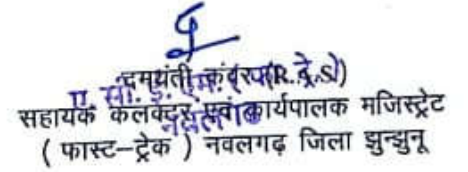 दमयंती कंवर (R.A.S)
ए. सी. ई. एम.
सहायक कलक्टर एवं कार्यपालक मजिस्ट्रेट
नवलगढ़
( फास्ट-ट्रेक ) नवलगढ़ जिला झुन्झुनू